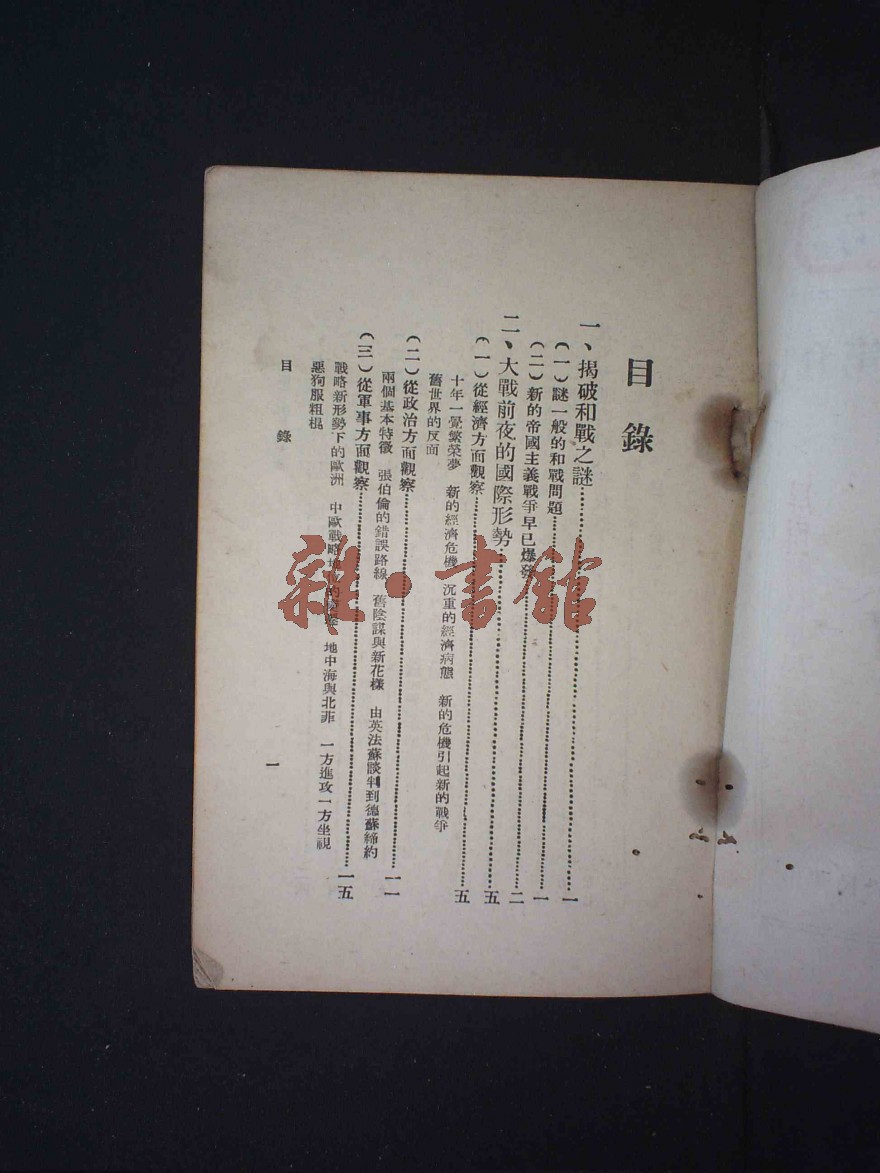 目錄
一、揭破和戰之謎……一
（一）謎一般的和戰問題……一
（二）新的帝國主義戰爭早已爆發……二
二、大戰前夜的國際形勢……五
（一）從經濟方面觀察……五
十年一覺繁榮夢　新的經濟危機　沉重的經濟病態　新的危機引起新的戰爭
舊世界的反面
（二）從政治方面觀察……一一
兩個基本特徵　張伯倫的錯誤路線　舊陰謀與新花樣　由英法蘇談判到德蘇締約
（三）從軍事方面觀察……一五
戰略新形勢下的歐洲　中歐戰略地位的　地中海與北菲　一方進攻一方坐視
惡狗服粗棍
目錄
一
雜·書館